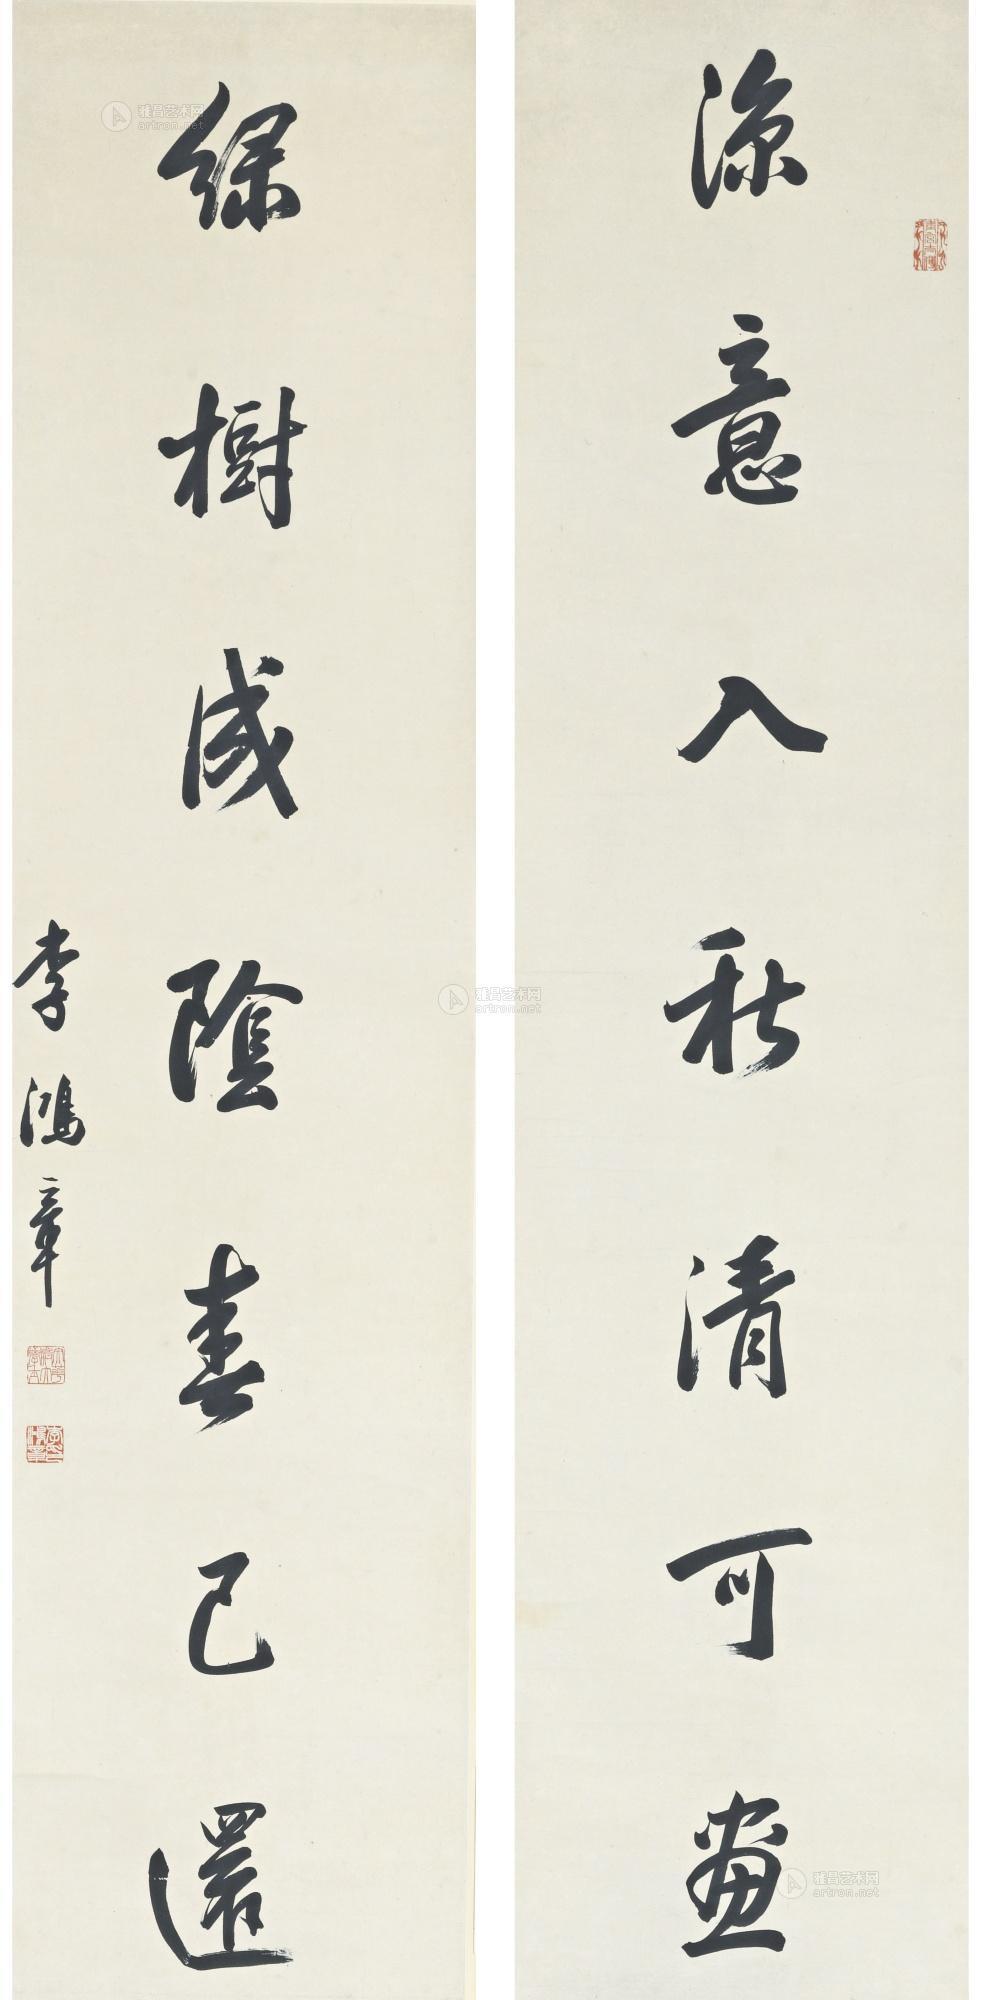 涼意入秋清可畫
綠樹成陰春已還
李鴻章
雅昌艺术网
artron.net
雅昌艺术网
artron.net
雅昌艺术网
artron.net